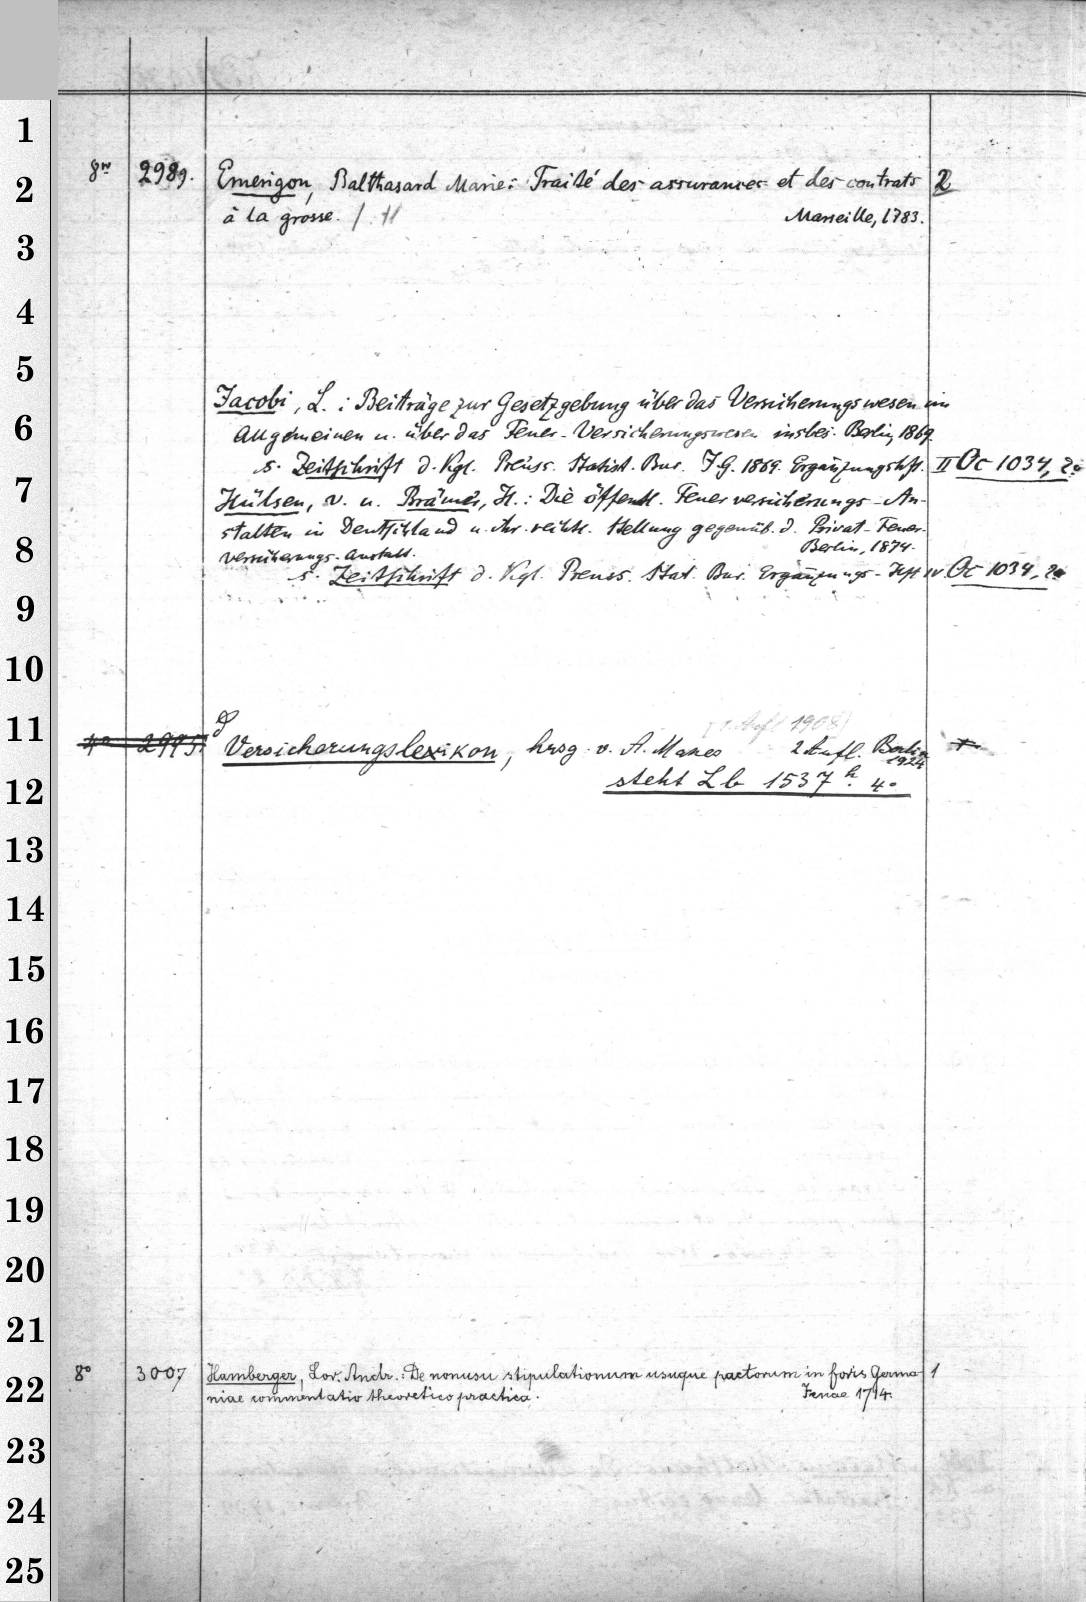 1
2
3
4
5
6
7
8
9
10
11
12
13
14
15
16
17
18
19
20
21
22
23
24
25
8° 2989. Emerigon, Balthasard Marie: Traité des assurances et des contrats 2
à la grosse. I. II Marseille, 1783.
Jacobi, L.: Beiträge zur Gesetzgebung über das Versicherungswesen im
Allgemeinen u. über das Feuer-Versicherungswesen insbes. Berlin, 1869
s. Zeitschrift d. Kgl. Preuss. Statist. Bur. J.G. 1869. Ergänzungshft. II Oc 1034, 2a
Hülsen, v. u. Brämer, H.: Die öffentl. Feuerversicherungs-An-
stalten in Deutschland u. ihr. rechtl. Stellung gegenüb. d. Privat-Feuer-
versicherungs-Anstalt. Berlin, 1874.
s. Zeitschrift d. Kgl. Preuss. Stat. Bur. Ergänzungs-Heft IV Oc 1034, 2a
(1. Aufl. 1908)
4° 2995. Versicherungslexikon, hrsg. v. A. Manes 2. Aufl. Berlin 1924
steht Lb 1537 h. 4°
8° 3007 Hamberger, Lor. Andr.: De nonusu stipulationum usuque pactorum in foris Germa- 1
niae commentatio theoretico practica. Jenae 1714.